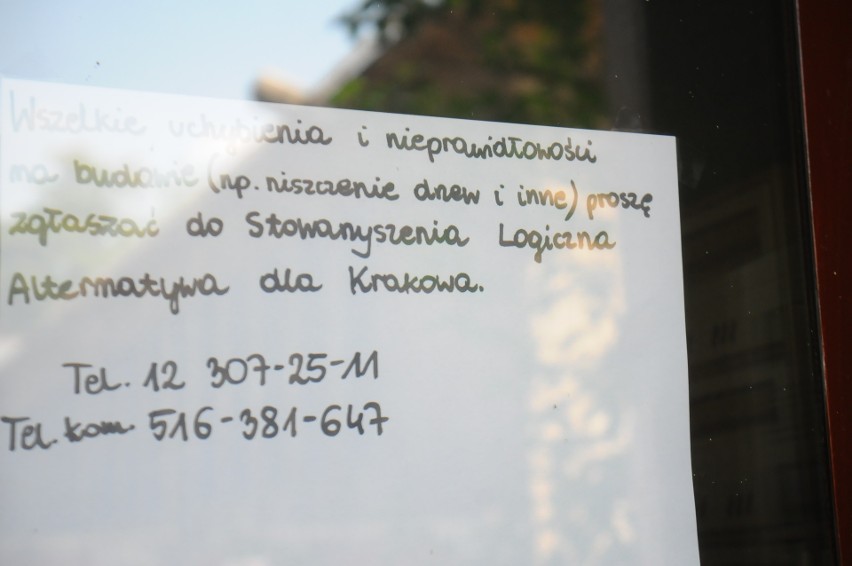 Wszelkie uchybienia i nieprawidłowości
na budowie (np. niszczenie drzew i inne) proszę
zgłaszać do Stowarzyszenia Logiczna
Alternatywa dla Krakowa.
Tel. 12 307-25-11
Tel. kom. 516-381-647